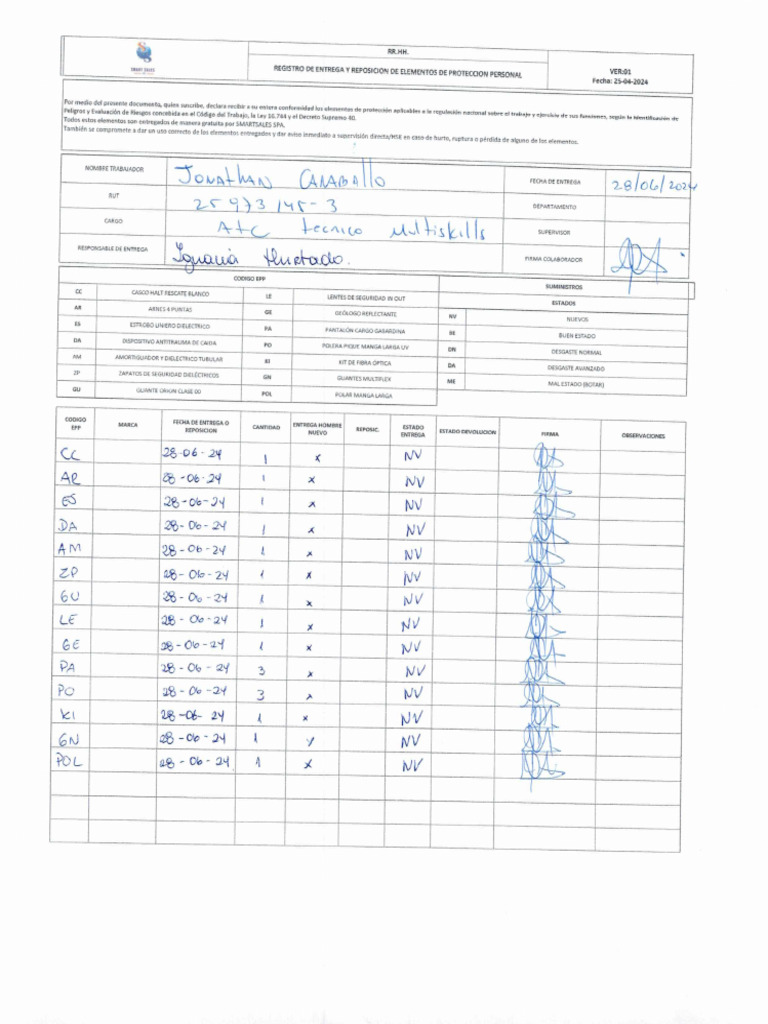 SMART SALES
RR.HH.
REGISTRO DE ENTREGA Y REPOSICION DE ELEMENTOS DE PROTECCION PERSONAL
VER:01
Fecha: 25-04-2024
Por medio del presente documento, quien suscribe, declara recibir a su entera conformidad los elementos de protección aplicables a la regulación nacional sobre el trabajo y ejercicio de sus funciones, según la Identificación de
Peligros y Evaluación de Riesgos concebida en el Código del Trabajo, la Ley 16.744 y el Decreto Supremo 40.
Todos estos elementos son entregados de manera gratuita por SMARTSALES SPA.
También se compromete a dar un uso correcto de los elementos entregados y dar aviso inmediato a supervisión directa/HSE en caso de hurto, ruptura o pérdida de alguno de los elementos.
NOMBRE TRABAJADOR Jonathan Caraballo FECHA DE ENTREGA 28/06/2024
RUT 25 973 145-3 DEPARTAMENTO
CARGO Atc tecnico Multiskills SUPERVISOR
RESPONSABLE DE ENTREGA Ignacia Hurtado. FIRMA COLABORADOR
CODIGO EPP SUMINISTROS
CC CASCO HALT RESCATE BLANCO LE LENTES DE SEGURIDAD IN OUT ESTADOS
AR ARNES 4 PUNTAS GE GEÓLOGO REFLECTANTE NV NUEVOS
ES ESTROBO LINIERO DIELECTRICO PA PANTALÓN CARGO GABARDINA BE BUEN ESTADO
DA DISPOSITIVO ANTITRAUMA DE CAIDA PO POLERA PIQUE MANGA LARGA UV DN DESGASTE NORMAL
AM AMORTIGUADOR Y DIELÉCTRICO TUBULAR KI KIT DE FIBRA ÓPTICA DA DESGASTE AVANZADO
ZP ZAPATOS DE SEGURIDAD DIELÉCTRICOS GN GUANTES MULTIFLEX ME MAL ESTADO (BOTAR)
GU GUANTE ORION CLASE 00 POL POLAR MANGA LARGA
CODIGO EPP MARCA FECHA DE ENTREGA O REPOSICION CANTIDAD ENTREGA HOMBRE NUEVO REPOSIC. ESTADO ENTREGA ESTADO DEVOLUCIÓN FIRMA OBSERVACIONES
CC 28-06-24 1 x NV
AR 28-06-24 1 x NV
ES 28-06-24 1 x NV
DA 28-06-24 1 x NV
AM 28-06-24 1 x NV
ZP 28-06-24 1 x NV
GU 28-06-24 1 x NV
LE 28-06-24 1 x NV
GE 28-06-24 1 x NV
PA 28-06-24 3 x NV
PO 28-06-24 3 x NV
KI 28-06-24 1 x NV
GN 28-06-24 1 x NV
POL 28-06-24 1 x NV